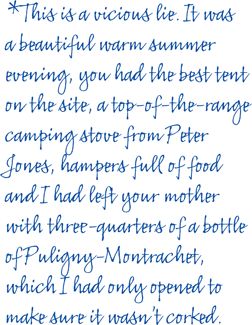 *This is a vicious lie. It was
a beautiful warm summer
evening, you had the best tent
on the site, a top-of-the-range
camping stove from Peter
Jones, hampers full of food
and I had left your mother
with three-quarters of a bottle
of Puligny-Montrachet,
which I had only opened to
make sure it wasn't corked.